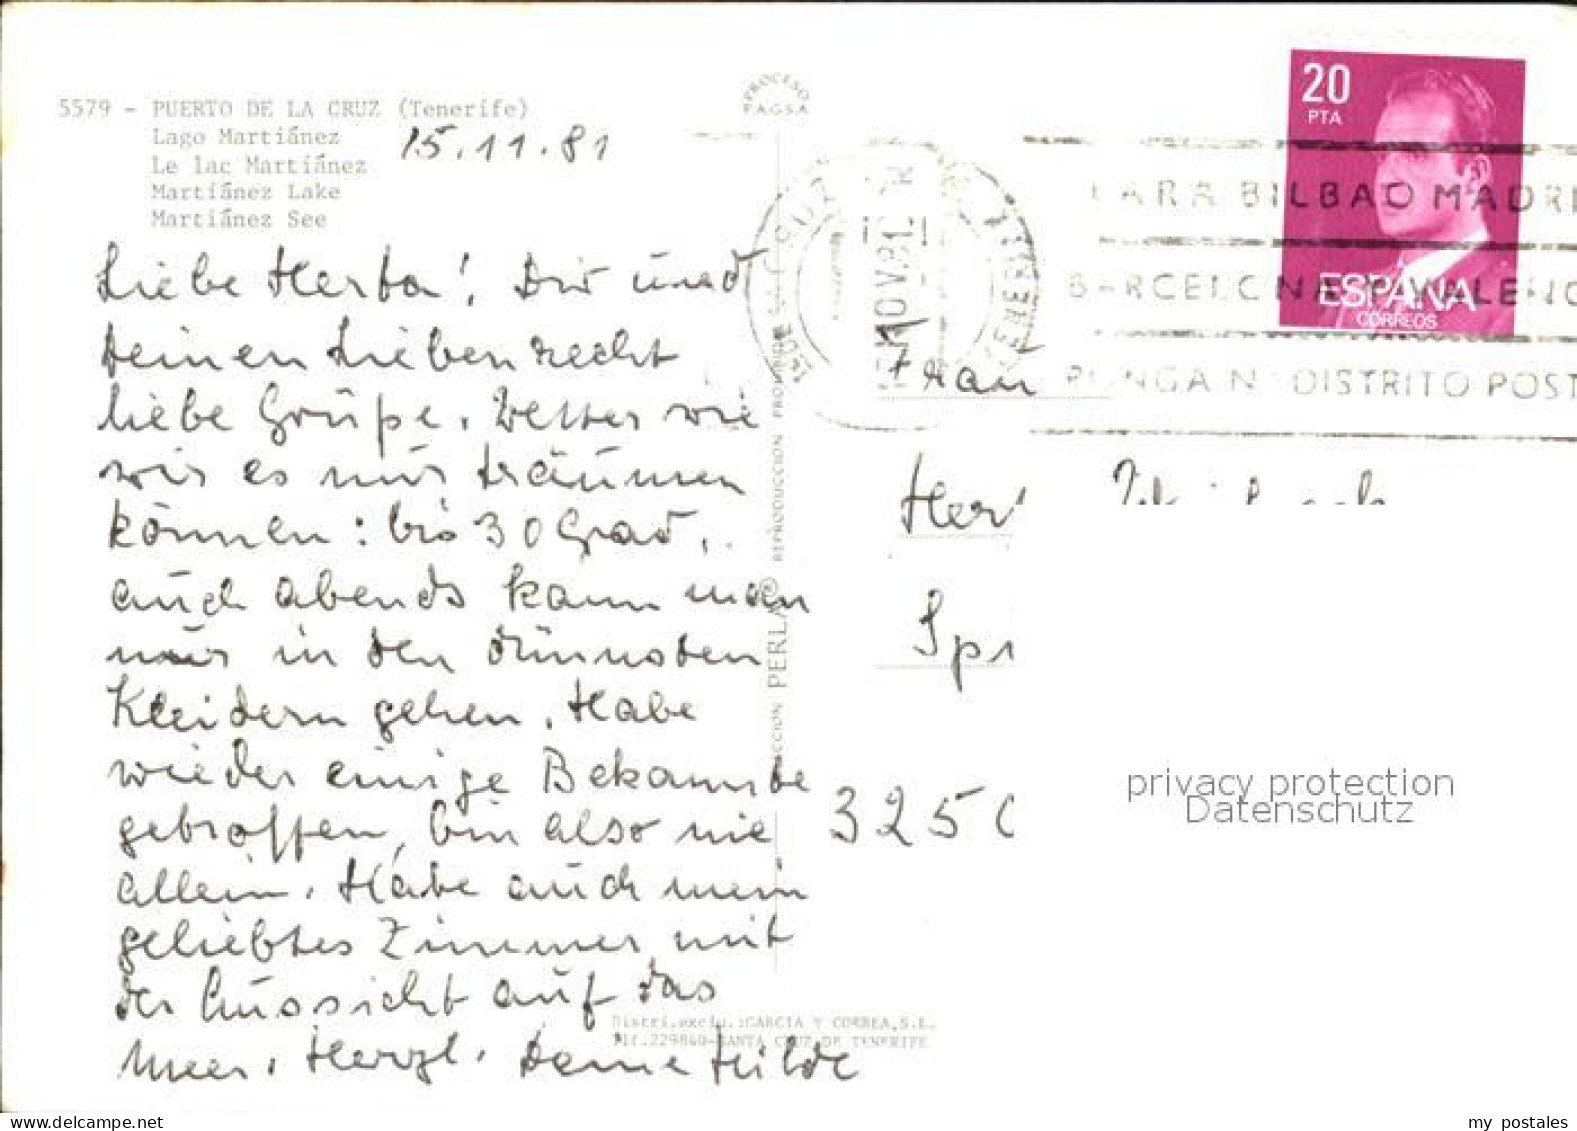 5579 - PUERTO DE LA CRUZ (Tenerife)
Lago Martiánez
Le lac Martiánez
Martiánez Lake
Martiánez See
15.11.81
Liebe Herta! Dir und
Deinen Lieben recht
liebe Grüße. Wetter wie
wir es nur träumen
können: bis 30 Grad,
auch abends kann man
nur in den dünnsten
Kleidern gehen. Habe
wieder einige Bekannte
getroffen, bin also nie
allein. Habe auch mein
geliebtes Zimmer mit
der Aussicht auf das
Meer. Herzl. Deine Hilde
PROCESO
PAGSA
REPRODUCCION PROHIBIDA
PERLA
Distri.exclu.:GARCIA Y CORREA,S.L.
Tlf.229840-SANTA CRUZ DE TENERIFE
20
PTA
ESPAÑA
CORREOS
PARA BILBAO MADRI
BARCELONA Y VALENC
PONGA Nº DISTRITO POST
NOV.81
TENERIFE
Frau
Her
Spr
325
privacy protection
Datenschutz
my postales